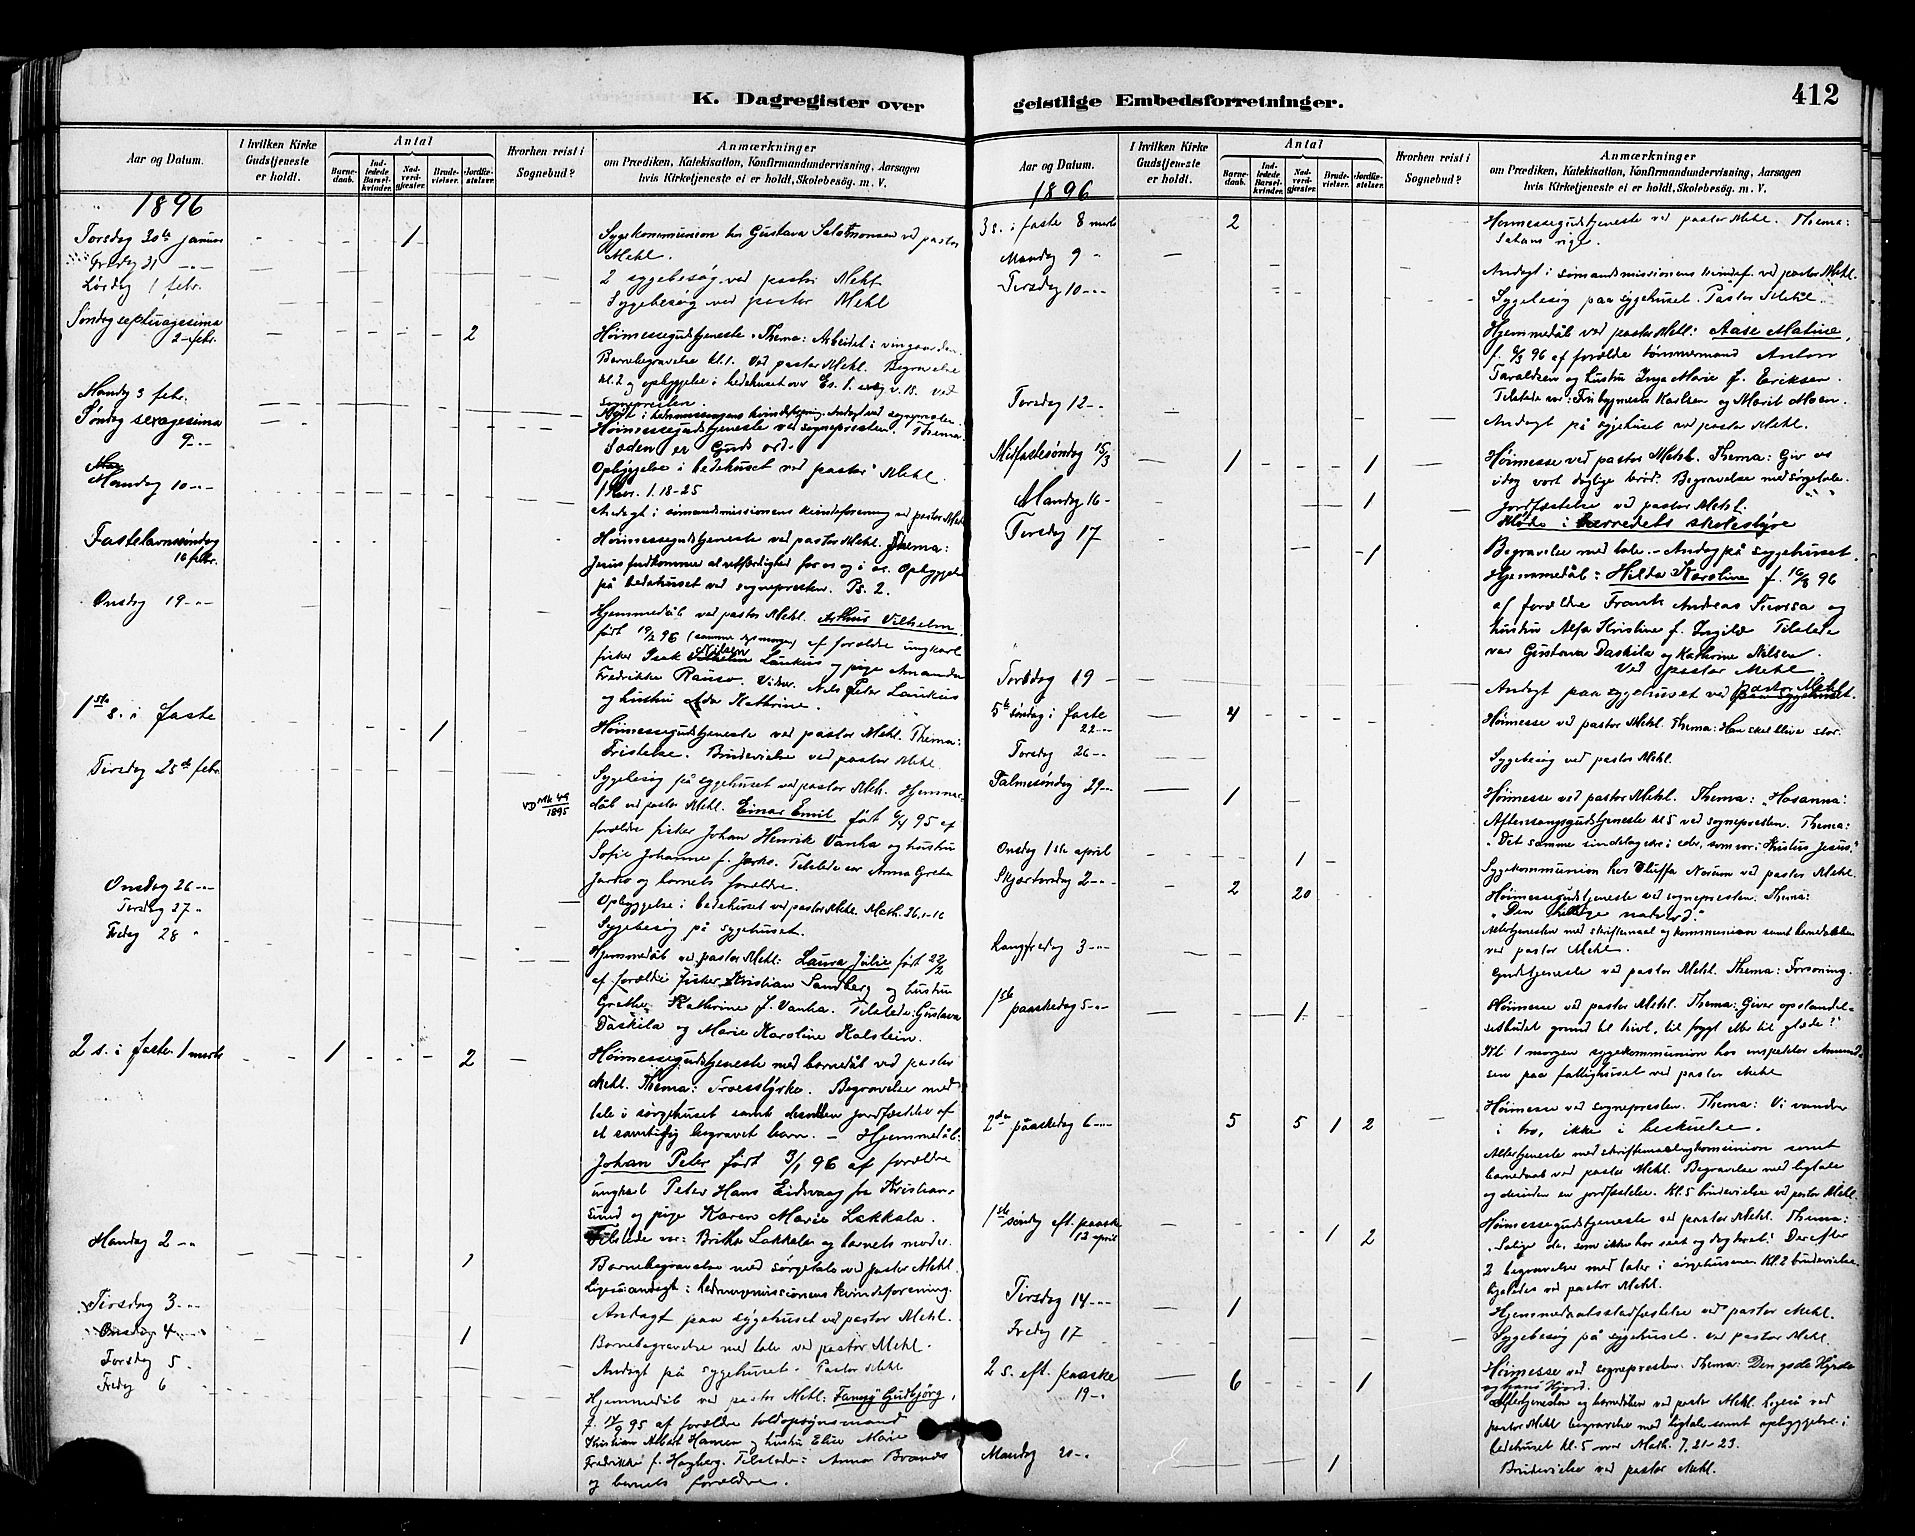 K. Dagregister over
Aar og Datum.
I hvilken Kirke Gudstjeneste er holdt.
Antal
Barnedaab.
Indledede Barselkvinder.
Nadverdgjester.
Brudevielser.
Jordfæstelser.
Hvorhen reist i Sognebud?
Anmærkninger
om Prædiken, Katekisation, Konfirmandundervisning, Aarsagen
hvis Kirketjeneste ei er holdt, Skolebesøg. m. V.
1896
Torsdag 30te januar 1 Sygekommunion hos Gustava Salomonsen ved pastor
Mehl.
Fredag 31 2 sygebesøg ved pastor Mehl
Lørdag 1 febr. Sygebesøg ved pastor Mehl
Søndag septuagesima
2 febr. 2 Høimessegudstjeneste. Thema: Arbeidet i vingaarden.
Barnebegravelse kl. 1. Ved pastor Mehl. Begravelse
kl. 2 og opbyggelse i bedehuset over Es. 1. v. 18. ved
sognepresten.
Mandag 3 febr.
Søndag sexagesima
9 Høimessegudstjeneste ved sognepresten. Thema:
Sæden er Guds ord.
Opbyggelse i bedehuset ved pastor Mehl.
1 Kor. 1. 18-25
Mandag 10 Andagt i sømandsmissionens kvindeforening ved pastor Mehl
Fastelavnssøndag
16 febr. Høimessegudstjeneste ved pastor Mehl. Thema:
Jesus fuldkommer al retfærdighed for os og i os. Opbyggelse
på bedehuset ved sognepresten. Ps. 2.
Onsdag 19 Hjemmedåb ved pastor Mehl. Arthur Vilhelm
født 19/2 96 af forældre ungkarl
fisker Isak Nilsen Laukus og pige Amanda
Fredrikke Vidner. Nils Peter Laukus
og hustru Ada Kathrine.
1ste s. i faste 1 Høimessegudstjeneste ved pastor Mehl. Thema:
Fristelse. Brudevielse ved pastor Mehl.
Tirsdag 25de febr. Sygebesøg på sygehuset ved pastor Mehl. Hjemme-
VD Mk 49
1895
dåb ved pastor Mehl. Einar Emil født 95 af
forældre fisker Johan Henrik Vanha og hustru
Sofie Johanne f. Tilstede var Anna Greta
og barnets forældre.
Onsdag 26 Opbyggelse i bedehuset ved pastor Mehl. Math. 26, 1-16
Torsdag 27 Sygebesøg på sygehuset.
Fredag 28 Hjemmedåb ved pastor Mehl: Laura Julie født 22/2
af forældre fisker Kristian Sandberg og hustru
Grethe Kathrine f. Vanha. Tilstede: Gustava
Daskila og Marie Karoline Kalstein.
2 s. i faste 1 marts 1 2 Høimessegudstjeneste med barnedåb ved pastor
Mehl. Thema: Troesstyrke. Begravelse med
tale i sørgehuset samt desuden jordfæstelse af
et samtidig begravet barn. – Hjemmedåb:
Johan Peter født 3/1 96 af forældre
ungkarl Peter Hans Eidsvaag fra Kristian-
sund og pige Karen Marie Lakkala.
Tilstede var: Britha Lakkala og barnets moder.
Mandag 2 1 Barnebegravelse med sørgetale ved pastor Mehl.
Ligesaa andagt i hedningemissionens kvindeforening.
Tirsdag 3 Andagt paa sygehuset ved pastor Mehl.
Onsdag 4 1 Barnebegravelse med tale ved pastor Mehl.
Torsdag 5 Andagt på sygehuset. Pastor Mehl
Fredag 6 Hjemmedåb ved pastor Mehl: Fanny Gudbjørg,
f. 17/9 95 af forældre toldopsynsmand
Kristian Albert Hansen og hustru Elise Marie
Fredrikke f. Hagberg. Tilstede: Anna Brands
og barnets forældre.
geistlige Embedsforretninger.
412
Aar og Datum.
I hvilken Kirke Gudstjeneste er holdt.
Antal
Barnedaab.
Indledede Barselkvinder.
Nadverdgjester.
Brudevielser.
Jordfæstelser.
Hvorhen reist i Sognebud?
Anmærkninger
om Prædiken, Katekisation, Konfirmandundervisning, Aarsagen
hvis Kirketjeneste ei er holdt, Skolebesøg m. V.
1896
3 s. i faste 8 marts 2 Høimessegudstjeneste ved pastor Mehl. Thema:
Satans rige.
Mandag 9 Andagt i sømandsmissionens kvindef. ved pastor Mehl.
Tirsdag 10 Sygebesøg paa sygehuset. Pastor Mehl.
Hjemmedåb ved pastor Mehl: Aase Matine,
f. 6/3 96 af forældre tømmermand Anton
Taraldsen og hustru Inga Marie f. Eriksen.
Tilstede var: Karlsen og Marit Moen.
Torsdag 12 Andagt på sygehuset ved pastor Mehl.
Midfastesøndag 15/3 1 1 Høimesse ved pastor Mehl. Thema: Giv os
idag vort daglige brød. Begravelse med sørgetale.
Mandag 16 1 Jordfæstelse ved pastor Mehl.
Tirsdag 17 Møde i herredets skolestyre
1 Begravelse med tale. – Andagt på sygehuset.
Hjemmedåb: Hilda Karoline f. 16/3 96
af forældre Frank Andreas og
hustru Alfa Kristine f. Tilstede
var Gustava Daskila og Kathrine Nilsen.
Ved pastor Mehl
Torsdag 19 Andagt paa sygehuset ved pastor Mehl.
5te søndag i faste
22 4 Høimesse ved pastor Mehl. Thema: Han skal blive stor.
Torsdag 26 Sygebesøg ved pastor Mehl.
Palmesøndag 29 1 Høimesse ved pastor Mehl. Thema: "Hosanna:
Aftensangsgudstjeneste kl 5 ved sognepresten. Thema:
"Det samme sindelag være i eder, som var i Kristus Jesus."
Onsdag 1ste april 1 Sygekommunion hos Oluffa Norum ved pastor Mehl.
Skjærtorsdag 2 2 20 Høimessegudstjeneste ved sognepresten. Thema:
"Den hellige nadverd."
Altertjenesten med skriftemaal og kommunion samt barnedåben
ved pastor Mehl.
Langfredag 3 Gudstjeneste ved pastor Mehl. Thema: Forsoning.
1ste paaskedag 5 1 Høimesse ved pastor Mehl. Thema: Giver opstandel-
sesbudet grund til tvivl, til frygt eller til glæde?
Kl 1 morgen sygekommunion hos inspektør Amund-
sen paa fattighuset ved pastor Mehl
2den påaskedag 6 5 5 1 2 Høimesse ved sognepresten. Thema: Vi vandre
i tro, ikke i beskuelse.
Altertjeneste med skriftemaal og kommunion samt
barnedaab ved pastor Mehl. Begravelse med ligtale
og desuden en jordfæstelse. Kl. 5 brudevielse ved pastor Mehl.
1ste søndag eft. paaske
12 april 1 2 Høimessegudstjeneste ved pastor Mehl. Thema:
"Salige de, som ikke har seet og dog troet! Derefter
2 begravelse med taler i sørgehusene. Kl. 2 brudevielse
ligeledes ved pastor Mehl.
Tirsdag 14 1 Hjemmedaabsstadfæstelse ved pastor Mehl.
Fredag 17 Sygebesøg på sygehuset. ved pastor Mehl
2 s. eft. paaske
19 6 1 Høimesse ved sognepresten. Thema: Den gode Hyrde
og hans Hjord.
Altertjenesten og barnedåben ved pastor Mehl. Ligesaa ved
pastor Mehl begravelse med ligtale samt opbyggelse i
bedehuset kl. 5 over Math. 7, 21-23.
Mandag 20 1 Brudevielse ved pastor Mehl.